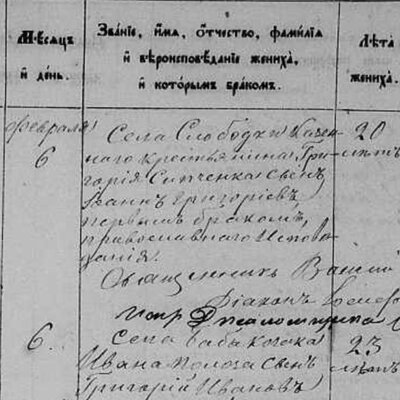 Мѣсяцъ и день.
Званіе, имя, отчество, фамилія и вѣроисповѣданіе жениха, и которымъ бракомъ.
Лѣта жениха.
февраля
6
Села Слободки Казен-
наго крестьянина Гри-
горія Сипченка сынъ
Іоаннъ Григоріевъ,
первымъ бракомъ,
православнаго Испове-
данія.
20
лѣтъ
Священникъ
Діаконъ
6.
Села козака
Ивана сынъ
Григорій Ивановъ
23